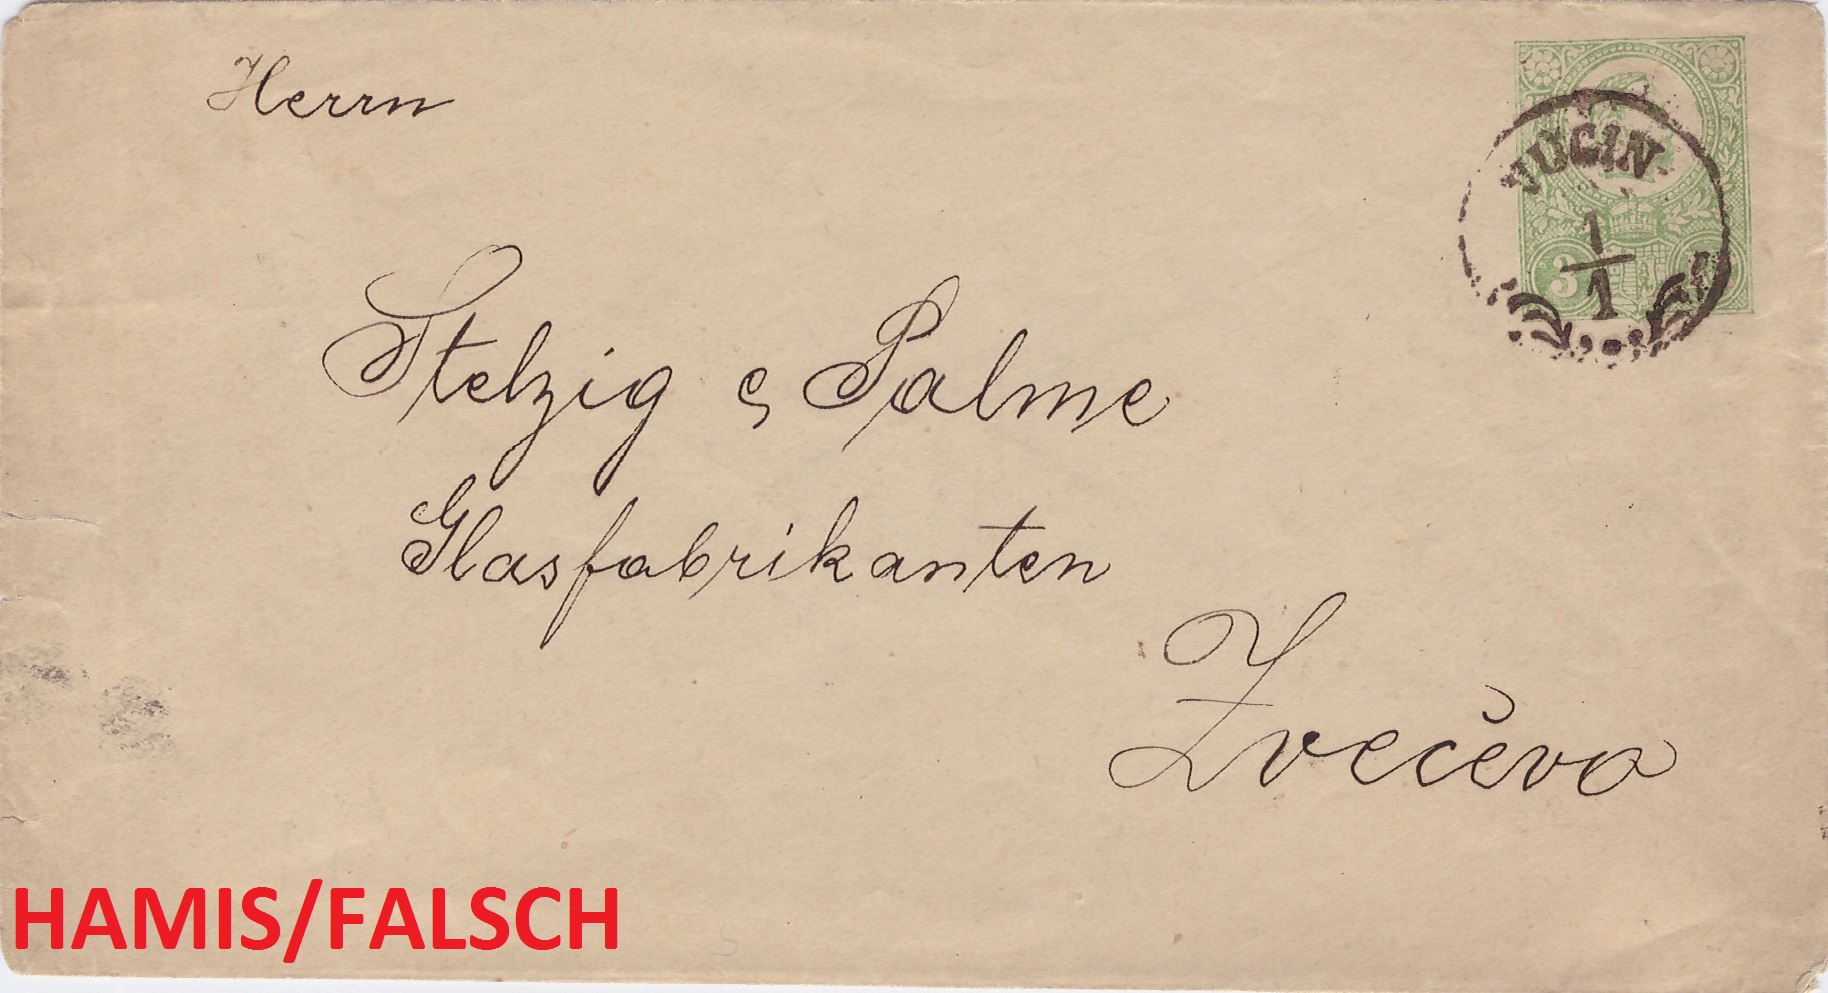 Herrn
VUČIN
1
1
3
Stelzig & Palme
Glasfabrikanten
Zvečevo
HAMIS/FALSCH